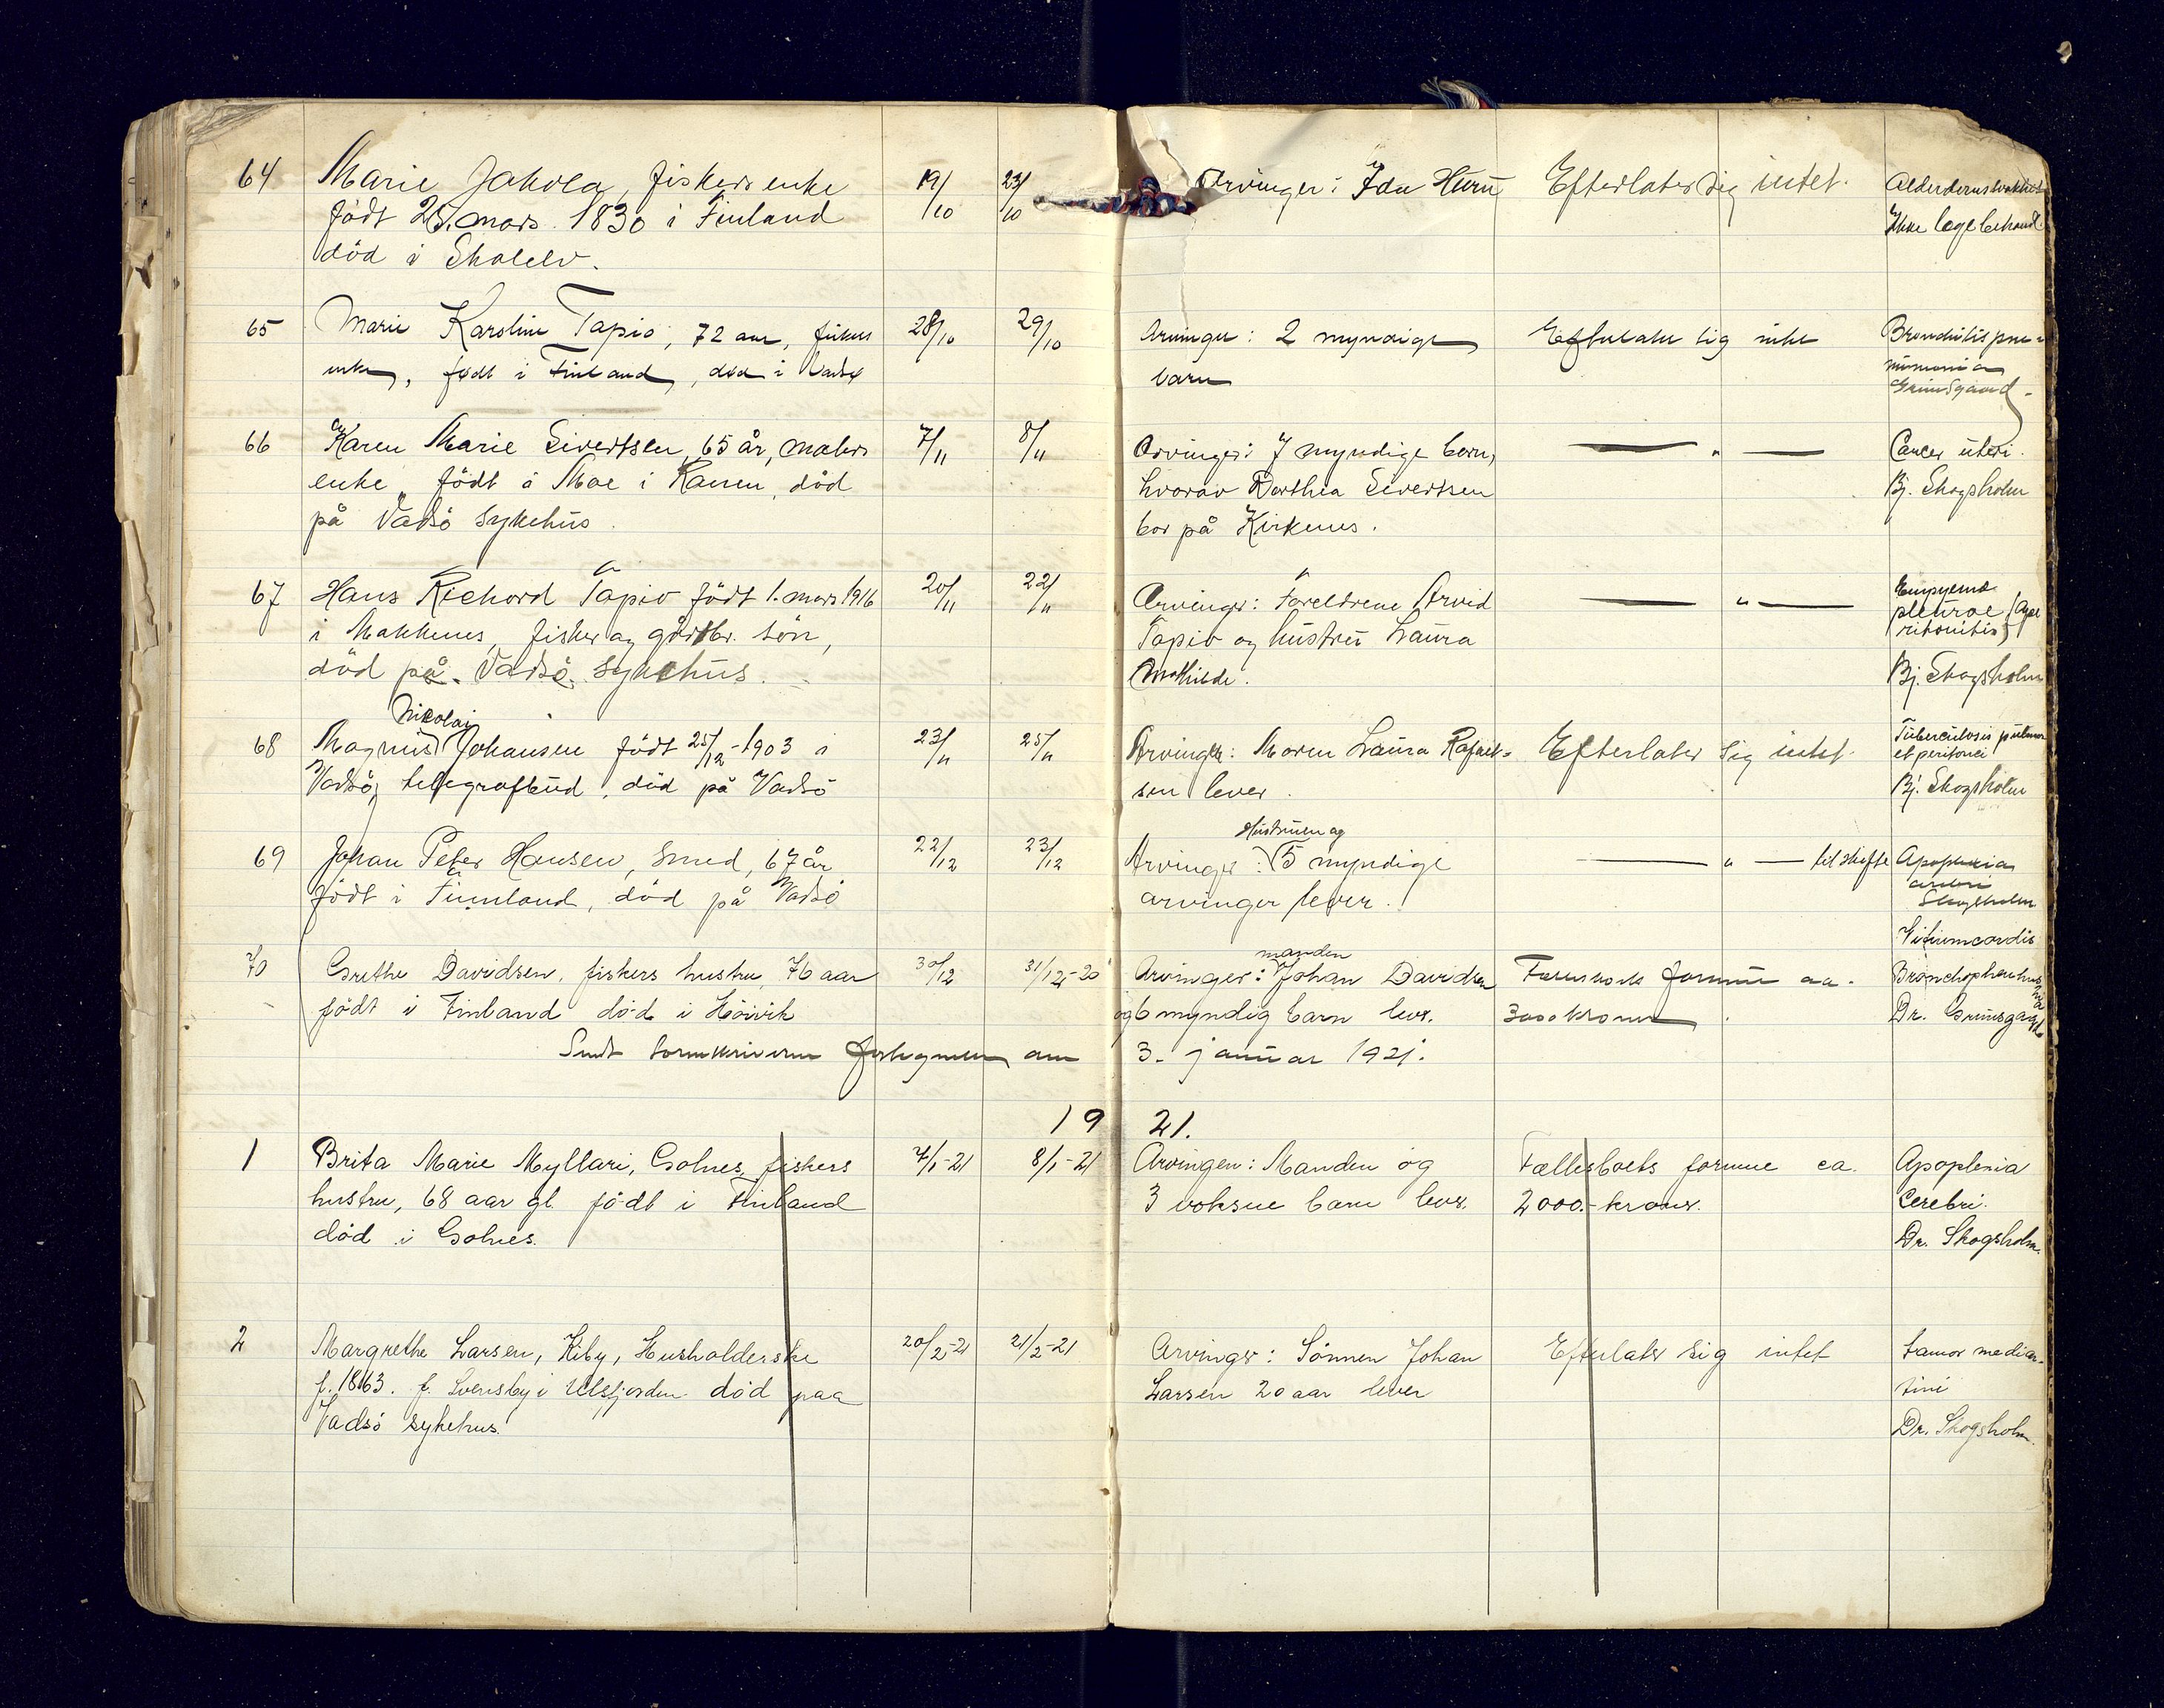 64 Marie Jakola, fiskers enke 19/10 23/10 Arvinger: Ida Huru Efterlater sig intet. Alderdomssvakhet
født 25. mars 1830 i Finland Ikke lægebehandl.
död i Skalelv.
65 Marie Karoline Tapio, 72 aar, fiskers 28/10 29/10 Arvinger: 2 myndige Efterlater sig intet Bronchitis pneu-
enke, født i Finland, død i Vadsø barn monia
Grimsgaard
66 Karen Marie Sivertsen, 65 år, malers 7/11 8/11 Arvinger: 7 myndige born, — " — Cancer uteri.
enke, födt å Moe i Ranen, död hvorav Dorthea Sivertsen Bj. Skogsholm
på Vadsö sykehus. bor på Kirkenes.
67 Hans Richard Tapio födt 1. mars 1916 20/11 22/11 Arvinger: Foreldrene Arvid — " — Empyema
i Makkenes, fisker og gårdbr. sön, Tapio og hustru Laura pleurae
död på Vadsö sykehus. Mathilde. Bj. Skogsholm
Nikolai
68 Magnus Johansen födt 25/12-1903 i 23/11 25/11 Arvinger: Maren Laura Rafaël- Efterlater sig intet. Tuberculosis pulmon
Vadsö, telegrafbud, död på Vadsö sen lever. et peritonei
Bj. Skogsholm
Hustruen og
69 Johan Peter Hansen, smed, 67 år 22/12 23/12 Arvinger: 5 myndige — " — til skifte Apoplexia
födt i Finnland, död på Vadsö arvinger lever. cerebri
Skogsholm
manden Vitium cordis
70 Grethe Davidsen, fiskers hustru, 76 aar 30/12 31/12-20 Arvinger: Johan Davidsen formue ca.
födt i Finland död i Höivik og 6 myndig barn lever. 3000 kroner. Dr. Grimsgaard
Sendt sorenskriveren fortegnelsen den 3. januar 1921.
1921.
1 Brita Marie Myllari, Golnes, fiskers 7/1-21 8/1-21 Arvingen: Manden og Fællesboets formue ca. Apoplexia
hustru, 68 aar gl. födt i Finland 3 voksne barn lever. 2000.- kroner. Cerebri.
död i Golnes. Dr. Skogsholm.
2 Margrethe Larsen, Kiby, Husholderske 20/2-21 21/2-21 Arvinger: Sönnen Johan Efterlater sig intet tumor medias-
f. 1863. f. Svensby i Ulsfjorden död paa Larsen 20 aar lever tini
Vadsö sykehus. Dr. Skogsholm.